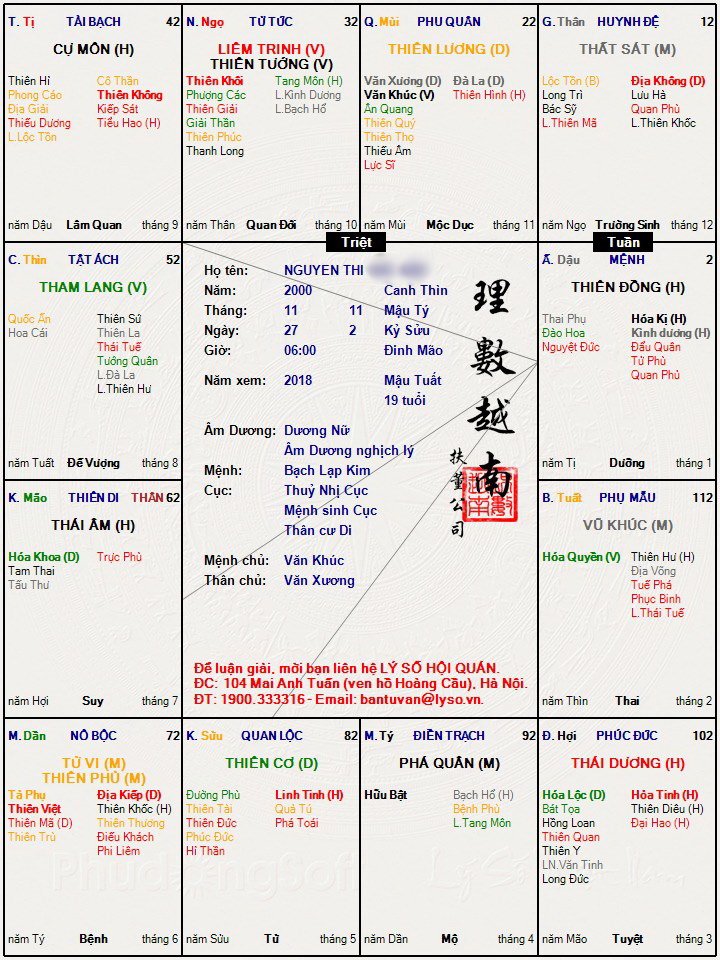 T. Tị TÀI BẠCH 42
CỰ MÔN (H)
Thiên Hỉ Cô Thần
Phong Cáo Thiên Không
Địa Giải Kiếp Sát
Thiếu Dương Tiểu Hao (H)
L.Lộc Tồn
năm Dậu Lâm Quan tháng 9
N. Ngọ TỬ TỨC 32
LIÊM TRINH (V)
THIÊN TƯỚNG (V)
Thiên Khôi Tang Môn (H)
Phượng Các L.Kình Dương
Thiên Giải L.Bạch Hổ
Giải Thần
Thiên Phúc
Thanh Long
năm Thân Quan Đới tháng 10
Q. Mùi PHU QUÂN 22
THIÊN LƯƠNG (D)
Văn Xương (D) Đà La (D)
Văn Khúc (V) Thiên Hình (H)
Ân Quang
Thiên Quý
Thiên Thọ
Thiếu Âm
Lực Sĩ
năm Mùi Mộc Dục tháng 11
G. Thân HUYNH ĐỆ 12
THẤT SÁT (M)
Lộc Tồn (B) Địa Không (D)
Long Trì Lưu Hà
Bác Sỹ Quan Phù
L.Thiên Mã L.Thiên Khốc
năm Ngọ Trường Sinh tháng 12
Triệt
Tuần
C. Thìn TẬT ÁCH 52
THAM LANG (V)
Quốc Ấn Thiên Sứ
Hoa Cái Thiên La
Thái Tuế
Tướng Quân
L.Đà La
L.Thiên Hư
năm Tuất Đế Vượng tháng 8
Họ tên: NGUYEN THI
Năm: 2000 Canh Thìn
Tháng: 11 11 Mậu Tý
Ngày: 27 2 Kỷ Sửu
Giờ: 06:00 Đinh Mão
Năm xem: 2018 Mậu Tuất
19 tuổi
Âm Dương: Dương Nữ
Âm Dương nghịch lý
Mệnh: Bạch Lạp Kim
Cục: Thuỷ Nhị Cục
Mệnh sinh Cục
Thân cư Di
Mệnh chủ: Văn Khúc
Thân chủ: Văn Xương
理數越南
扶董公司
Để luận giải, mời bạn liên hệ LÝ SỐ HỘI QUÁN.
ĐC: 104 Mai Anh Tuấn (ven hồ Hoàng Cầu), Hà Nội.
ĐT: 1900.333316 - Email: bantuvan@lyso.vn.
Ấ. Dậu MỆNH 2
THIÊN ĐỒNG (H)
Thai Phụ Hóa Kị (H)
Đào Hoa Kình dương (H)
Nguyệt Đức Đẩu Quân
Tử Phù
Quan Phủ
năm Tị Dưỡng tháng 1
K. Mão THIÊN DI THÂN 62
THÁI ÂM (H)
Hóa Khoa (D) Trực Phù
Tam Thai
Tấu Thư
năm Hợi Suy tháng 7
B. Tuất PHỤ MẪU 112
VŨ KHÚC (M)
Hóa Quyền (V) Thiên Hư (H)
Địa Võng
Tuế Phá
Phục Binh
L.Thái Tuế
năm Thìn Thai tháng 2
M. Dần NÔ BỘC 72
TỬ VI (M)
THIÊN PHỦ (M)
Tả Phụ Địa Kiếp (D)
Thiên Việt Thiên Khốc (H)
Thiên Mã (D) Thiên Thương
Thiên Trù Điếu Khách
Phi Liêm
năm Tý Bệnh tháng 6
K. Sửu QUAN LỘC 82
THIÊN CƠ (D)
Đường Phù Linh Tinh (H)
Thiên Tài Quả Tú
Thiên Đức Phá Toái
Phúc Đức
Hỉ Thần
năm Sửu Tử tháng 5
M. Tý ĐIỀN TRẠCH 92
PHÁ QUÂN (M)
Hữu Bật Bạch Hổ (H)
Bệnh Phù
L.Tang Môn
năm Dần Mộ tháng 4
Đ. Hợi PHÚC ĐỨC 102
THÁI DƯƠNG (H)
Hóa Lộc (D) Hỏa Tinh (H)
Bát Tọa Thiên Diêu (H)
Hồng Loan Đại Hao (H)
Thiên Quan
Thiên Y
LN.Văn Tinh
Long Đức
năm Mão Tuyệt tháng 3